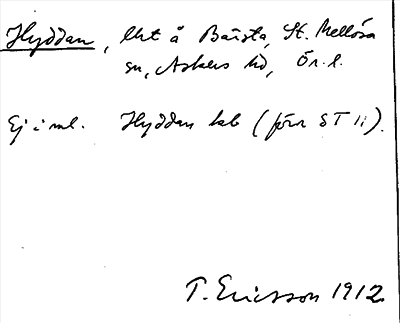 Hyddan, lht å Bärsta, St. Mellösa
sn, Askers hd, Ör. l.
Ej i ml. Hyddan lab (förr ST 11).
T. Ericsson 1912